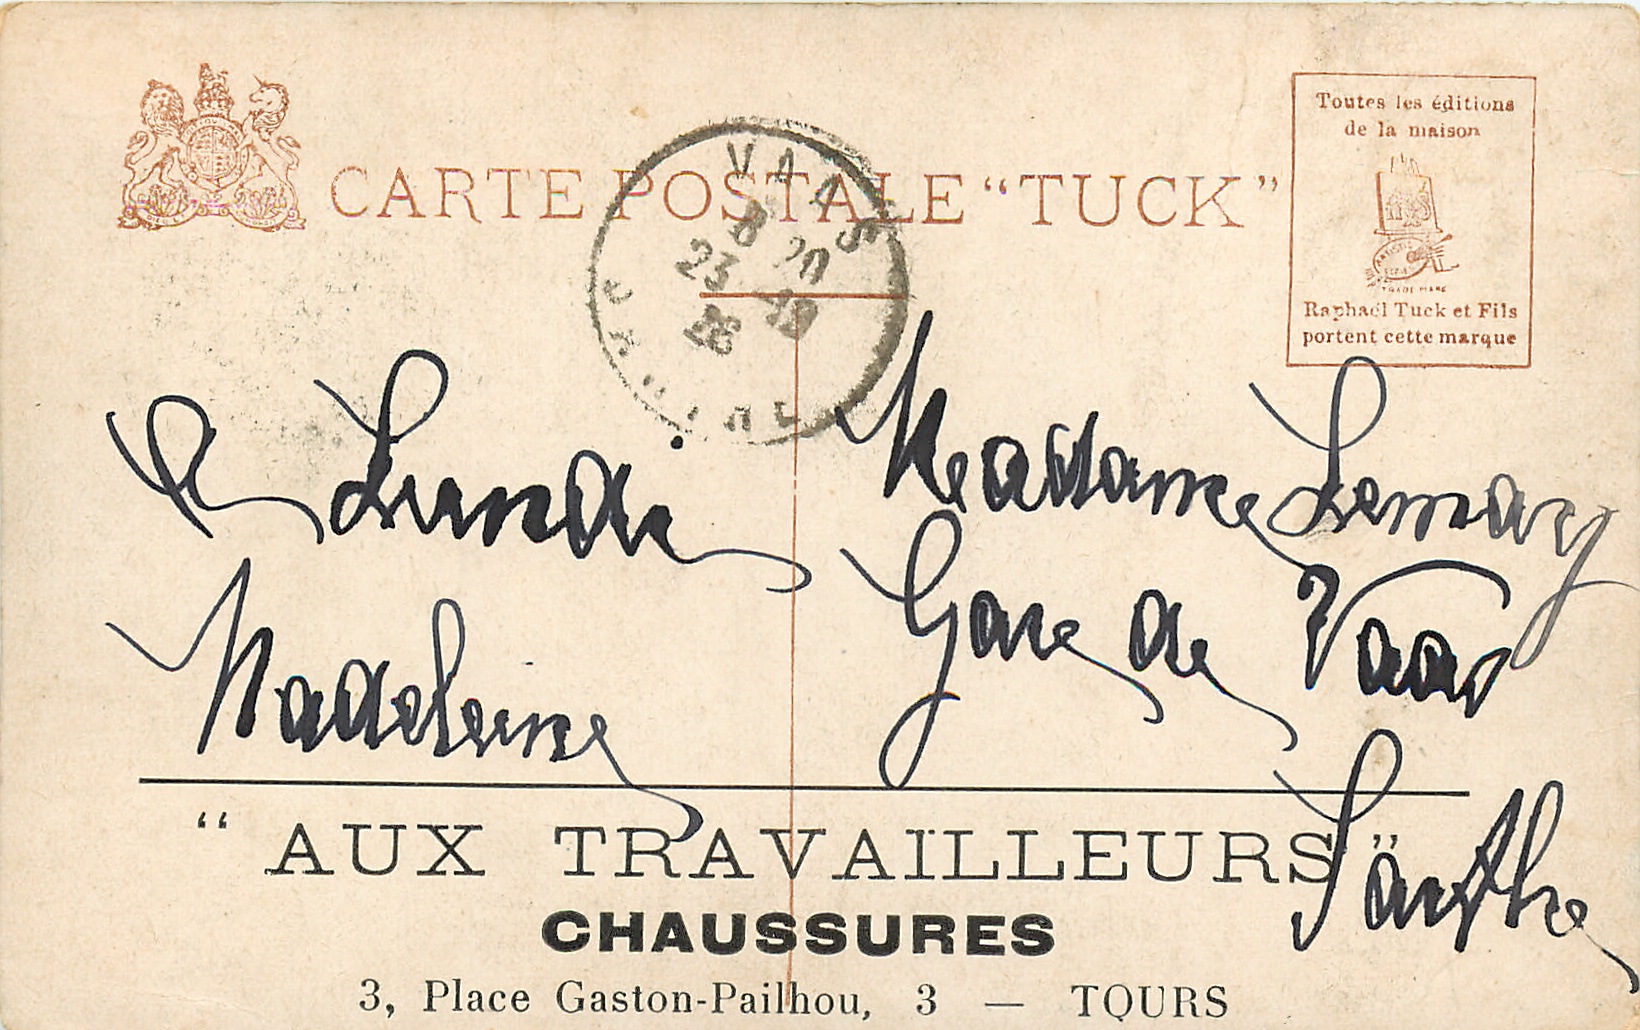 CARTE POSTALE "TUCK"
Toutes les éditions
de la maison
TRADE MARK
Raphaël Tuck et Fils
portent cette marque
VAAS
8 20
23 12
26
SARTHE
A Lundi
Madeleine
Madame Lemary
Gare de Vaas
Sarthe
"AUX TRAVAILLEURS"
CHAUSSURES
3, Place Gaston-Pailhou, 3 — TOURS